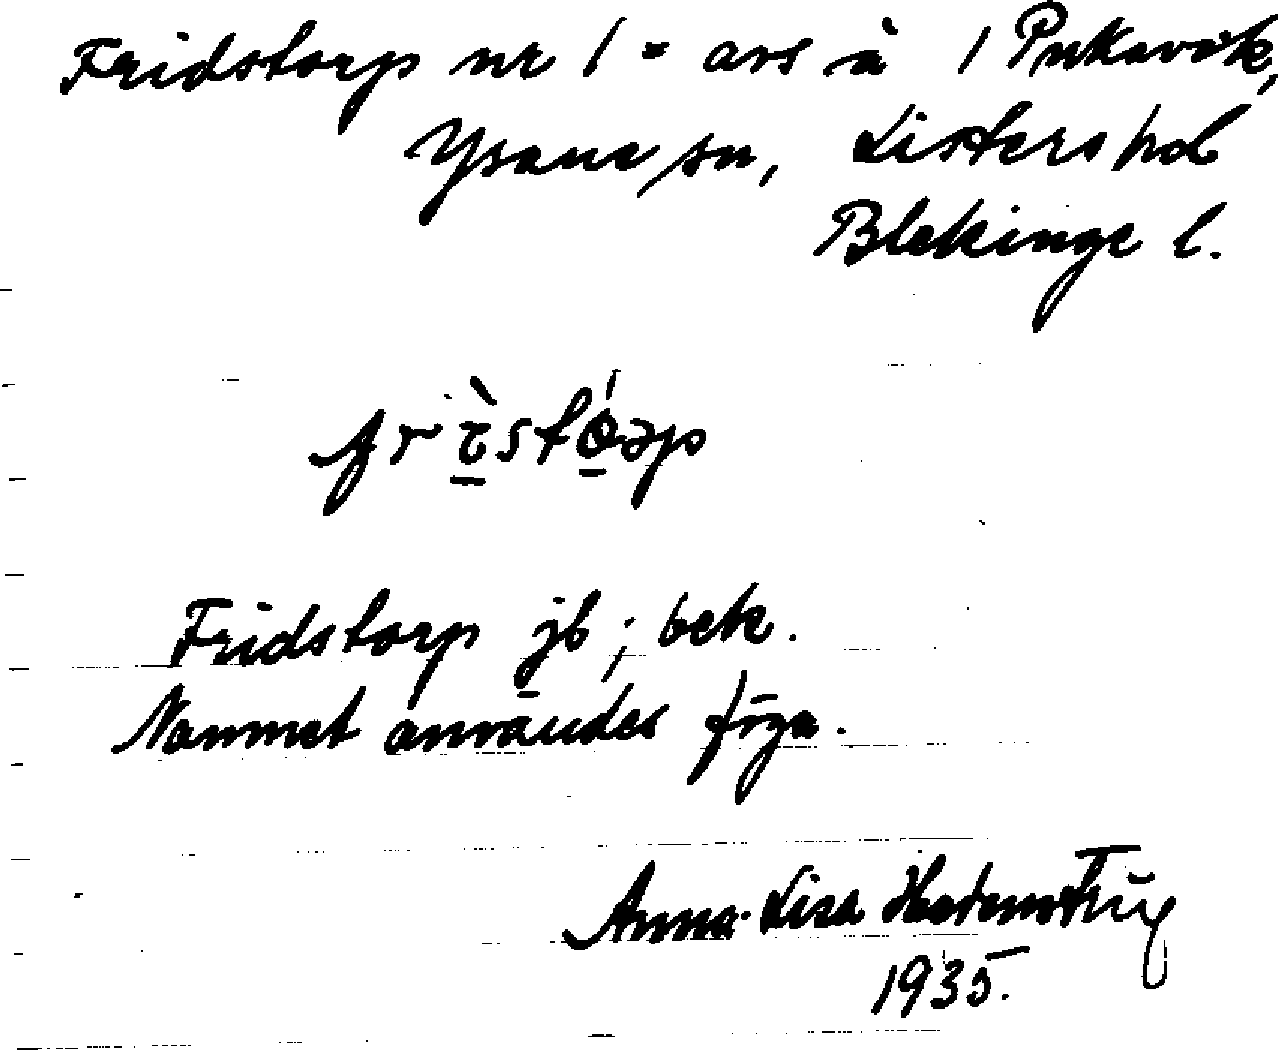 Fridstorp nr 1 = avs å 1 Pukavik,
Ysane sn, Listers hd
Blekinge l.
frìstóəp
Fridstorp jb; bek.
Namnet användes föga.
Anna-Lisa
1935.